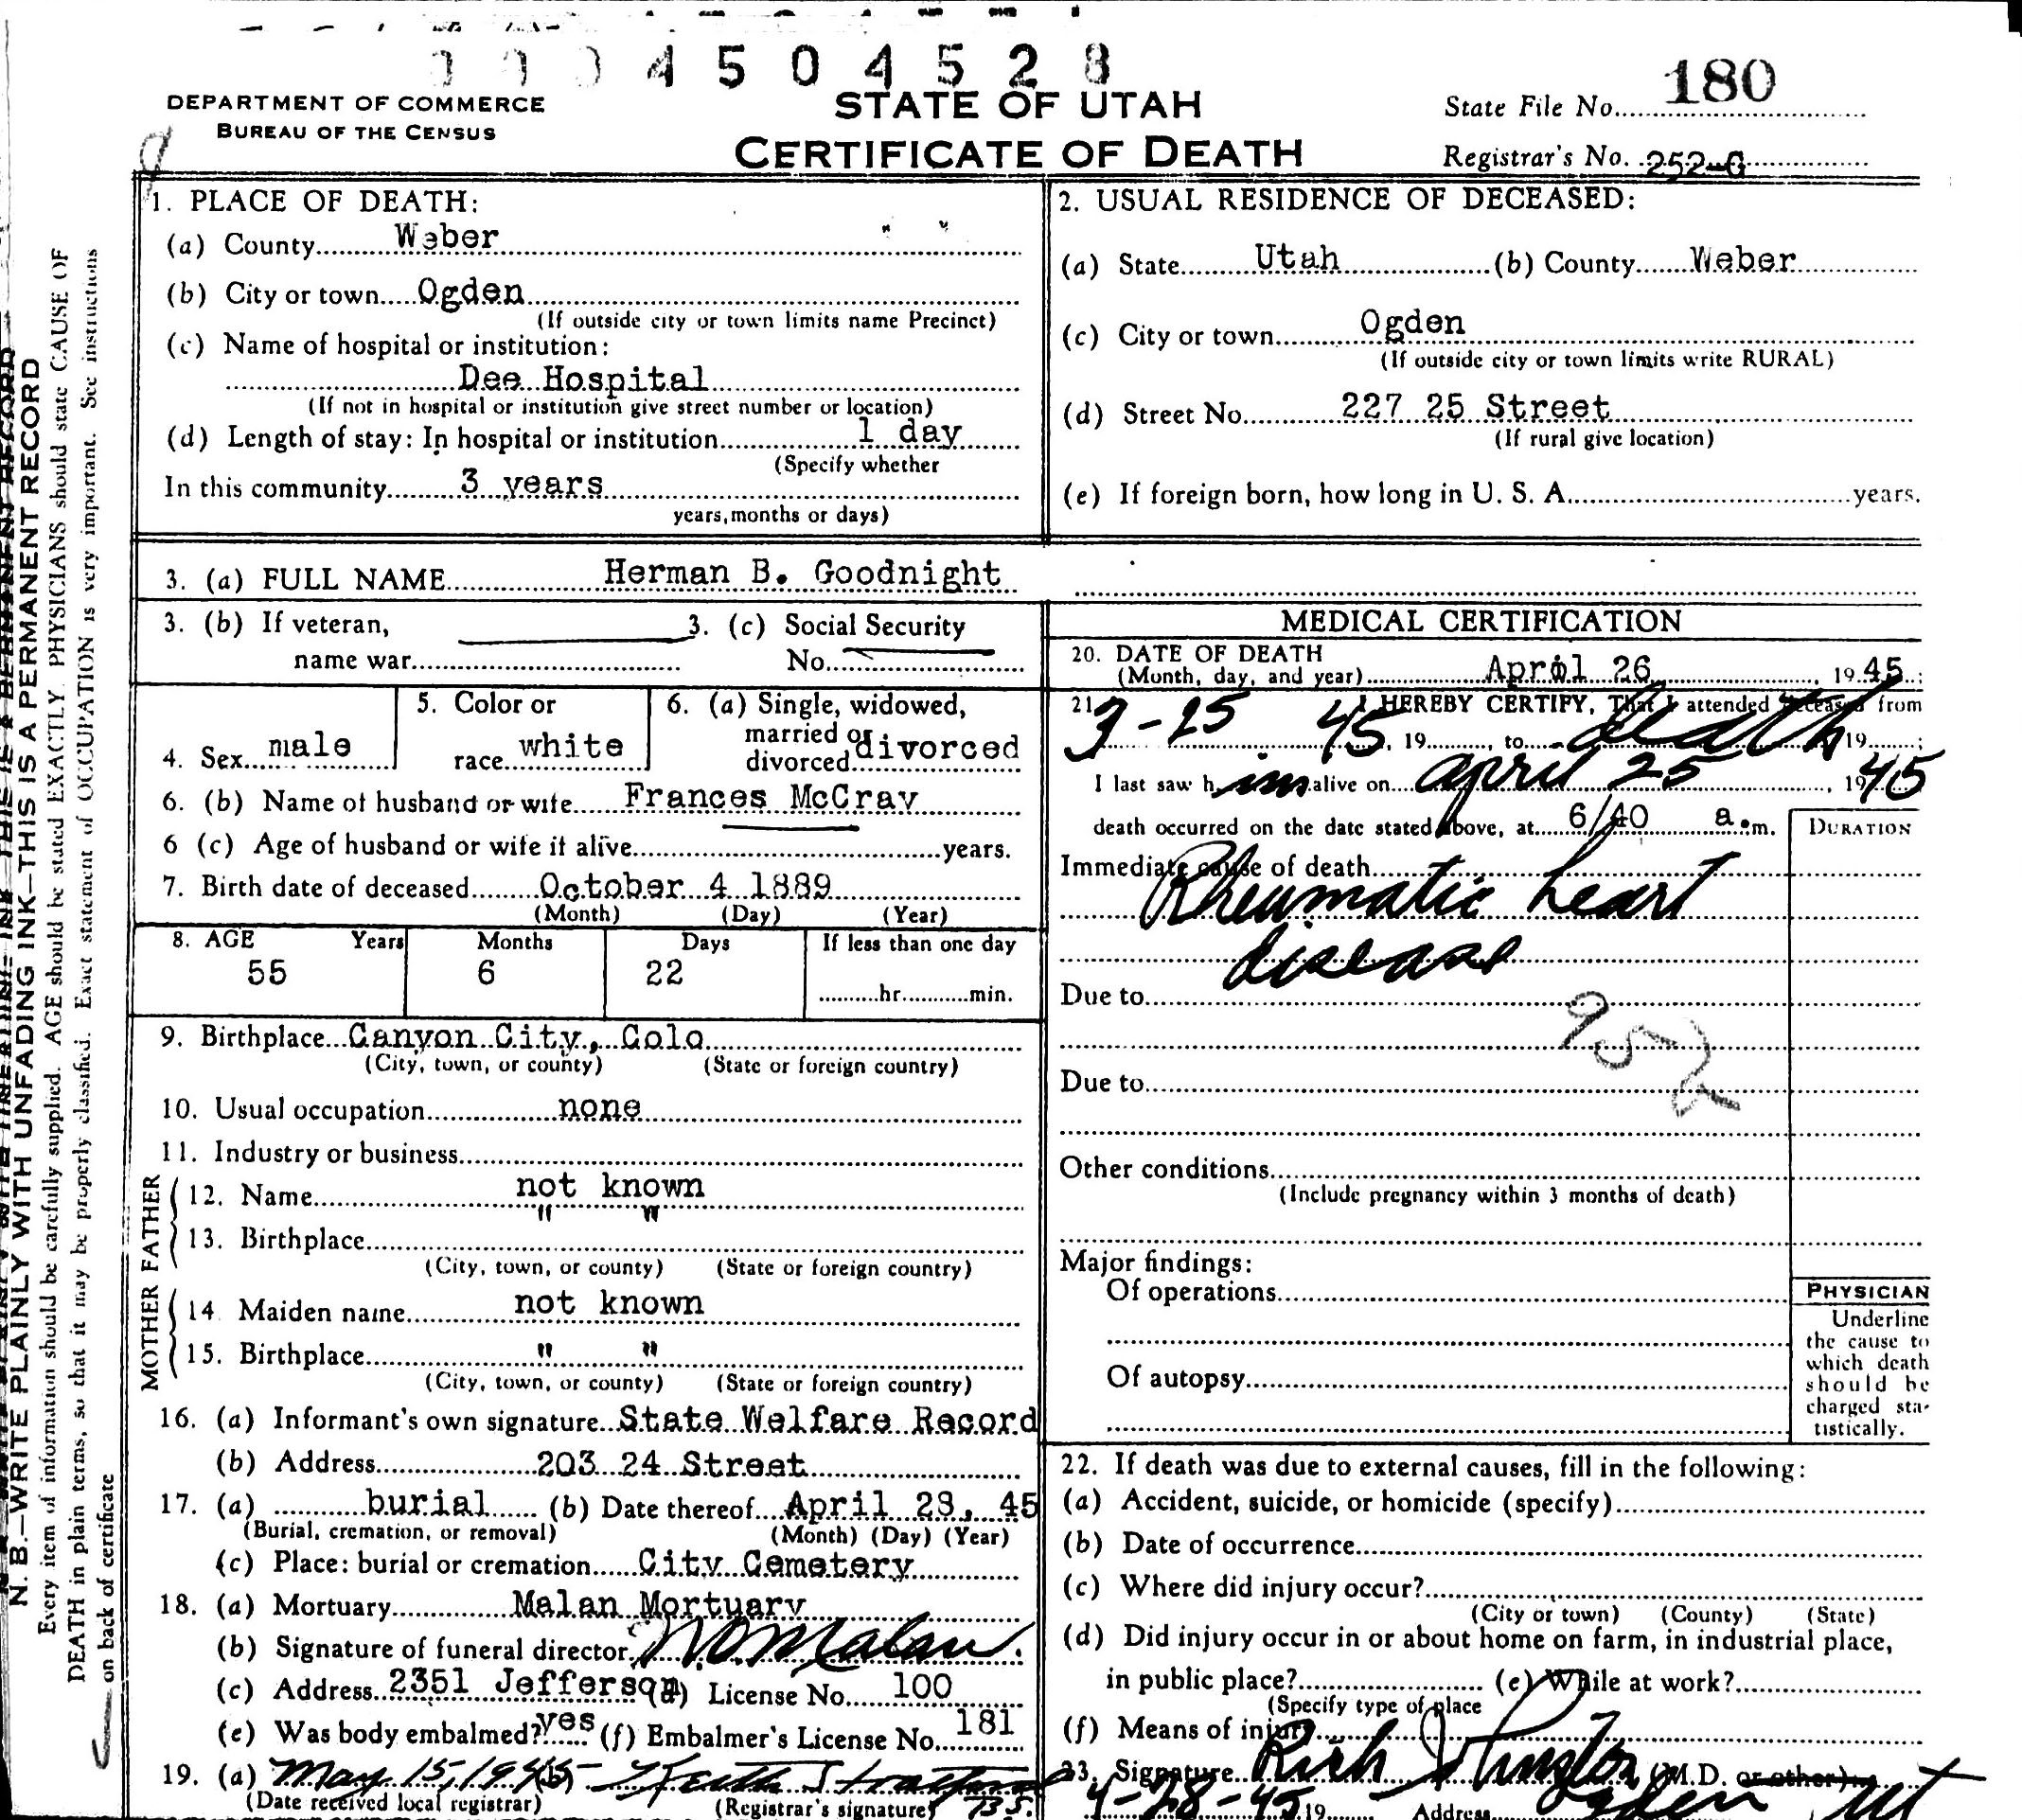 4 5 0 4 5 2 8
DEPARTMENT OF COMMERCE
BUREAU OF THE CENSUS
STATE OF UTAH
CERTIFICATE OF DEATH
State File No. 180
Registrar's No. 252-G
N. B.—WRITE PLAINLY WITH UNFADING INK—THIS IS A PERMANENT RECORD
Every item of information should be carefully supplied. AGE should be stated EXACTLY. PHYSICIANS should state CAUSE OF
DEATH in plain terms, so that it may be properly classified. Exact statement of OCCUPATION is very important. See instructions
on back of certificate
1. PLACE OF DEATH:
(a) County Weber
(b) City or town Ogden
(If outside city or town limits name Precinct)
(c) Name of hospital or institution:
Dee Hospital
(If not in hospital or institution give street number or location)
(d) Length of stay: In hospital or institution 1 day
(Specify whether
In this community 3 years
years, months or days)
2. USUAL RESIDENCE OF DECEASED:
(a) State Utah (b) County Weber
(c) City or town Ogden
(If outside city or town limits write RURAL)
(d) Street No. 227 25 Street
(If rural give location)
(e) If foreign born, how long in U. S. A. years.
3. (a) FULL NAME Herman B. Goodnight
3. (b) If veteran,
name war
3. (c) Social Security
No.
4. Sex male
5. Color or
race white
6. (a) Single, widowed,
married or
divorced divorced
6. (b) Name of husband or wife Frances McCray
6 (c) Age of husband or wife if alive years.
7. Birth date of deceased October 4 1889
(Month) (Day) (Year)
8. AGE Years Months Days If less than one day
55 6 22
hr. min.
9. Birthplace Canyon City, Colo
(City, town, or county) (State or foreign country)
10. Usual occupation none
11. Industry or business
FATHER
12. Name not known
13. Birthplace " "
(City, town, or county) (State or foreign country)
MOTHER
14. Maiden name not known
15. Birthplace " "
(City, town, or county) (State or foreign country)
16. (a) Informant's own signature State Welfare Record
(b) Address 203 24 Street
17. (a) burial (b) Date thereof April 28, 45
(Burial, cremation, or removal) (Month) (Day) (Year)
(c) Place: burial or cremation City Cemetery
18. (a) Mortuary Malan Mortuary
(b) Signature of funeral director Malan
(c) Address 2351 Jefferson (d) License No. 100
(e) Was body embalmed? yes (f) Embalmer's License No. 181
19. (a) May 15, 1945
(Date received local registrar) (Registrar's signature)
MEDICAL CERTIFICATION
20. DATE OF DEATH
(Month, day, and year) April 26, 1945
21. I HEREBY CERTIFY, That I attended deceased from
3-25 45, 19 , to death 19 ;
I last saw him alive on April 25, 1945
death occurred on the date stated above, at 6/40 a.m.
DURATION
Immediate cause of death
Rheumatic heart
disease
Due to
952
Due to
Other conditions
(Include pregnancy within 3 months of death)
Major findings:
Of operations
Of autopsy
PHYSICIAN
Underline
the cause to
which death
should be
charged sta-
tistically.
22. If death was due to external causes, fill in the following:
(a) Accident, suicide, or homicide (specify)
(b) Date of occurrence
(c) Where did injury occur?
(City or town) (County) (State)
(d) Did injury occur in or about home on farm, in industrial place,
in public place? (e) While at work?
(Specify type of place
(f) Means of injury
23. Signature Rich Johnston (M.D. or other)
4-28-45 19 Address Ogden Ut